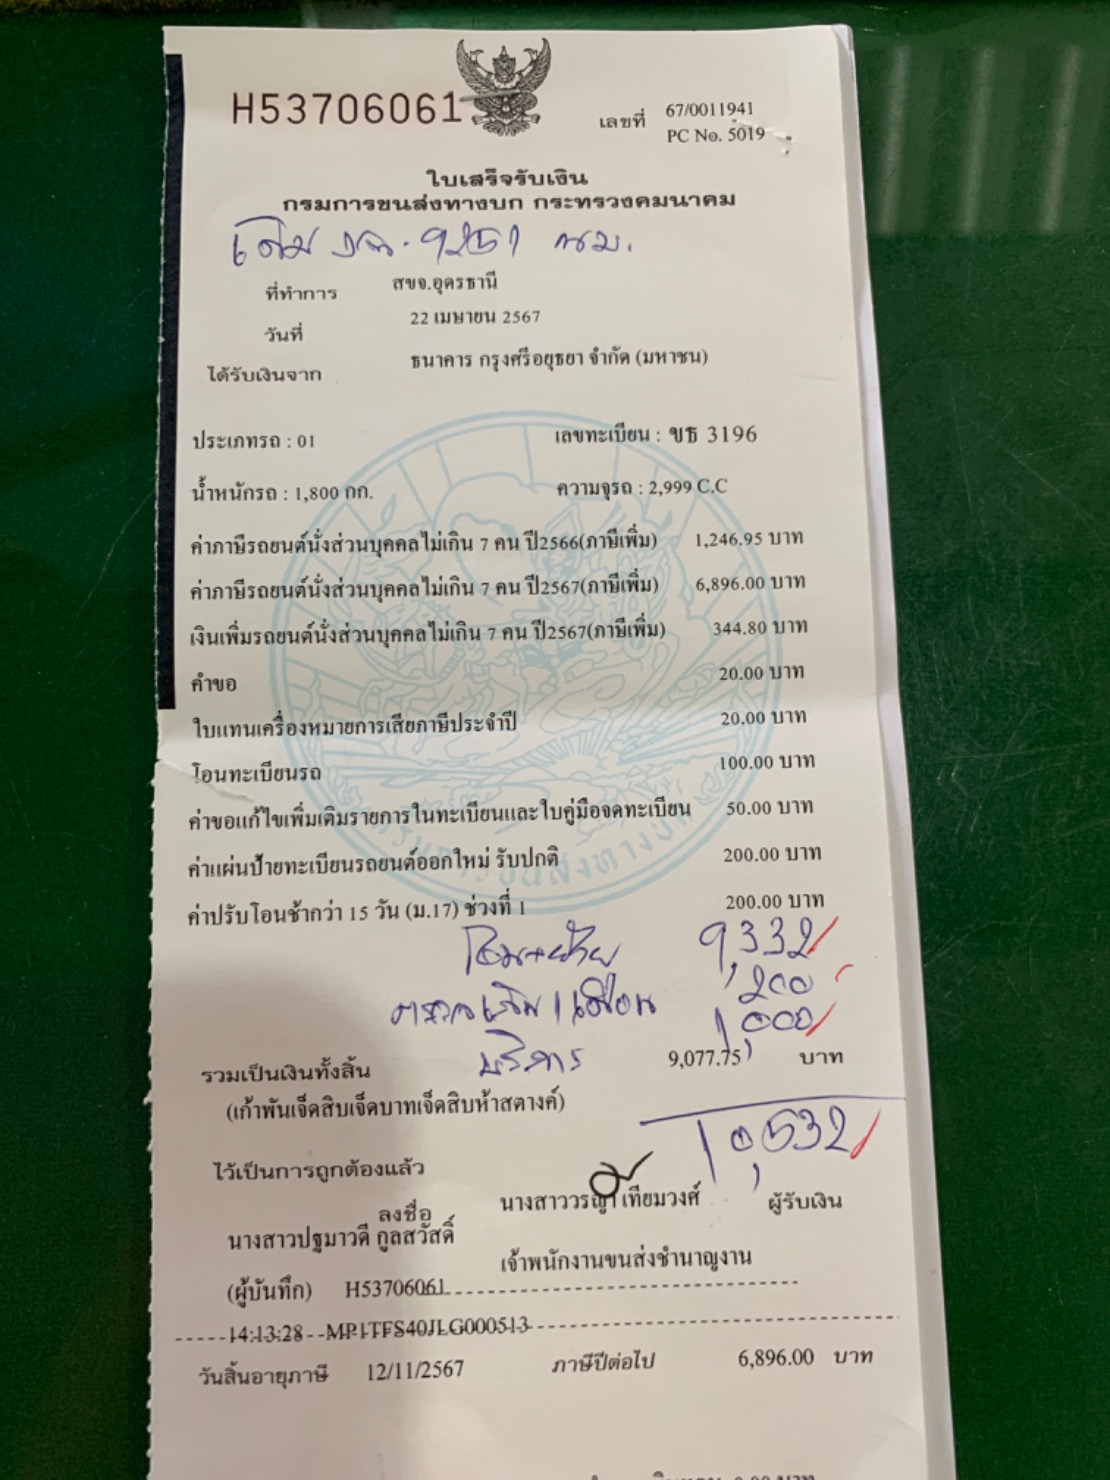 H53706061
เลขที่ 67/0011941
PC No. 5019
ใบเสร็จรับเงิน
กรมการขนส่งทางบก กระทรวงคมนาคม
เดิม 9251 กม.
ที่ทำการ สขจ.อุดรธานี
วันที่ 22 เมษายน 2567
ได้รับเงินจาก ธนาคาร กรุงศรีอยุธยา จำกัด (มหาชน)
ประเภทรถ : 01 เลขทะเบียน : ขธ 3196
น้ำหนักรถ : 1,800 กก. ความจุรถ : 2,999 C.C
ค่าภาษีรถยนต์นั่งส่วนบุคคลไม่เกิน 7 คน ปี2566(ภาษีเพิ่ม) 1,246.95 บาท
ค่าภาษีรถยนต์นั่งส่วนบุคคลไม่เกิน 7 คน ปี2567(ภาษีเพิ่ม) 6,896.00 บาท
เงินเพิ่มรถยนต์นั่งส่วนบุคคลไม่เกิน 7 คน ปี2567(ภาษีเพิ่ม) 344.80 บาท
คำขอ 20.00 บาท
ใบแทนเครื่องหมายการเสียภาษีประจำปี 20.00 บาท
โอนทะเบียนรถ 100.00 บาท
ค่าขอแก้ไขเพิ่มเติมรายการในทะเบียนและใบคู่มือจดทะเบียน 50.00 บาท
ค่าแผ่นป้ายทะเบียนรถยนต์ออกใหม่ รับปกติ 200.00 บาท
ค่าปรับโอนช้ากว่า 15 วัน (ม.17) ช่วงที่ 1 200.00 บาท
โอน+ย้าย 9,332
1 เดือน 200
บริการ 1,000
รวมเป็นเงินทั้งสิ้น 9,077.75 บาท
(เก้าพันเจ็ดสิบเจ็ดบาทเจ็ดสิบห้าสตางค์)
10,532
ไว้เป็นการถูกต้องแล้ว
ลงชื่อ นางสาววรญา เทียมวงศ์ ผู้รับเงิน
นางสาวปฐมาวดี กูลสวัสดิ์
เจ้าพนักงานขนส่งชำนาญงาน
(ผู้บันทึก) H53706061
14:13:28 MP1TFS40JLG000513
วันสิ้นอายุภาษี 12/11/2567 ภาษีปีต่อไป 6,896.00 บาท